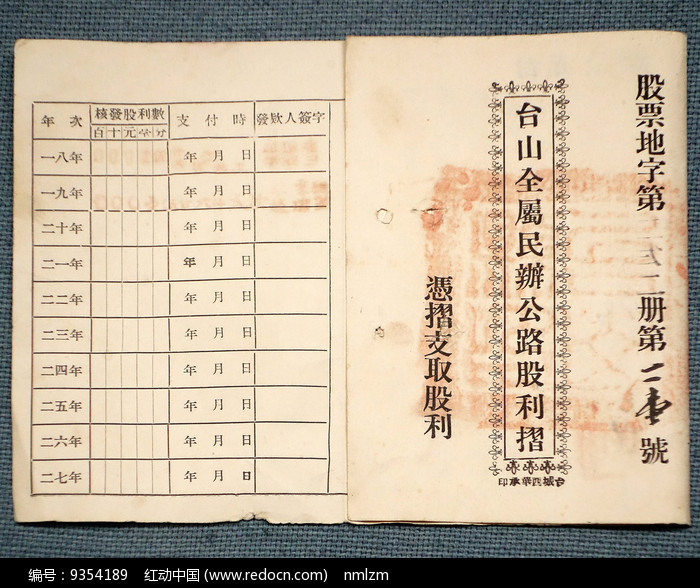 股票地字第二六二册第二壹號
台山全屬民辦公路股利摺
憑摺支取股利
台城西華承印
年次 核發股利數 支付時 發欵人簽字
百十元毫分
一八年 年月日
一九年 年月日
二十年 年月日
二一年 年月日
二二年 年月日
二三年 年月日
二四年 年月日
二五年 年月日
二六年 年月日
二七年 年月日
编号：9354189 红动中国 (www.redocn.com) nmlzm